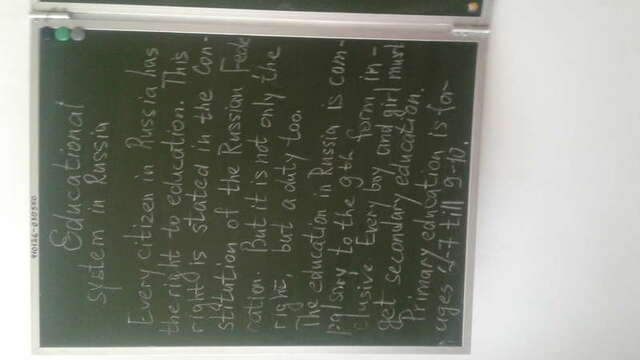 910126-030300
Educational
system in Russia
Every citizen in Russia has
the right to education. This
right is stated in the Con-
stitution of the Russian Fede
ration. But it is not only the
right, but a duty too.
The education in Russia is com-
pulsory to the 9th form, in-
clusive Every boy and girl must
get secondary education.
Primary education is for
ages 6-7 till 9-10.